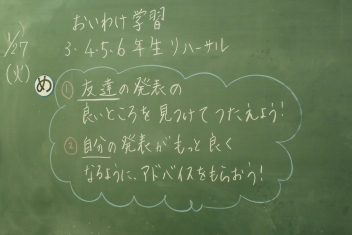 おいわけ学習
1/27
3.4.5.6年生リハーサル
(火)
め
① 友達の発表の
良いところを見つけてつたえよう!
② 自分の発表がもっと良く
なるように、アドバイスをもらおう!